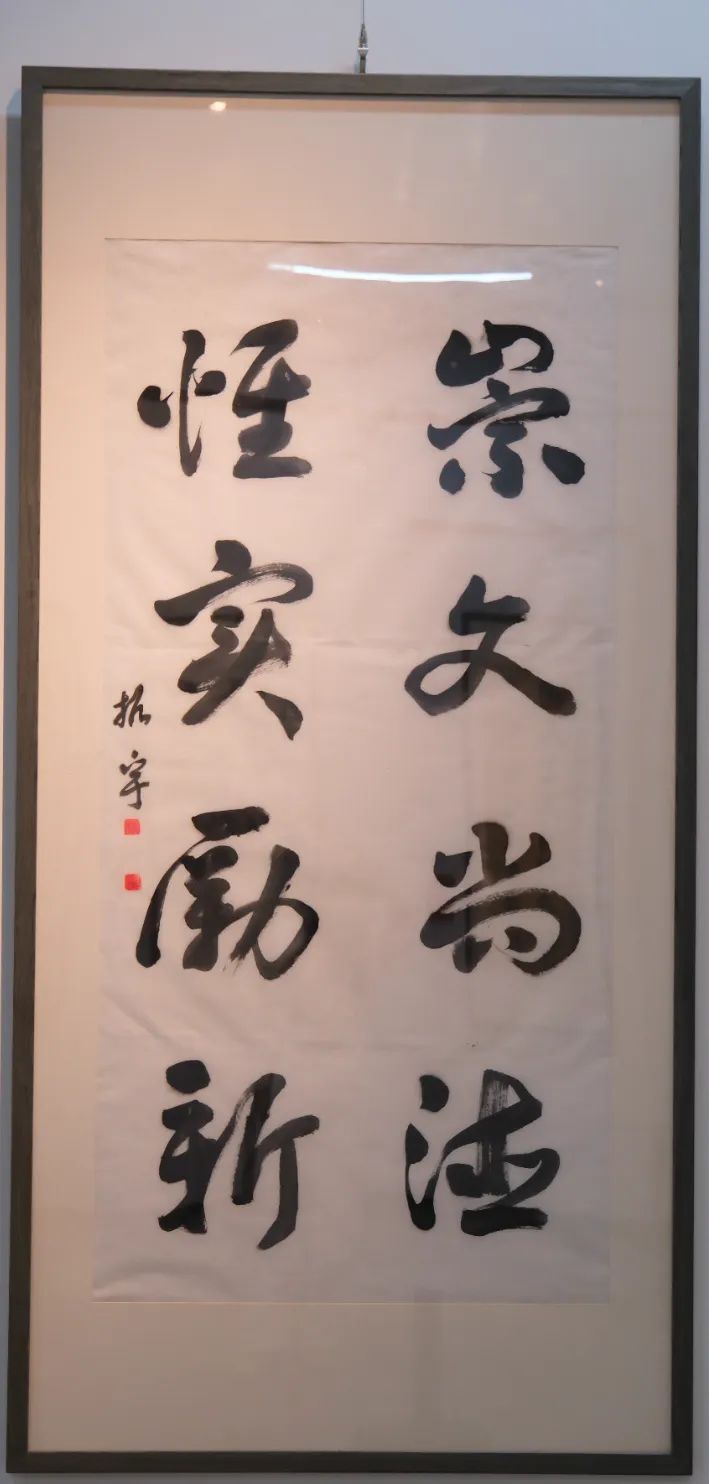 崇文尚德
惟实励新
振宇